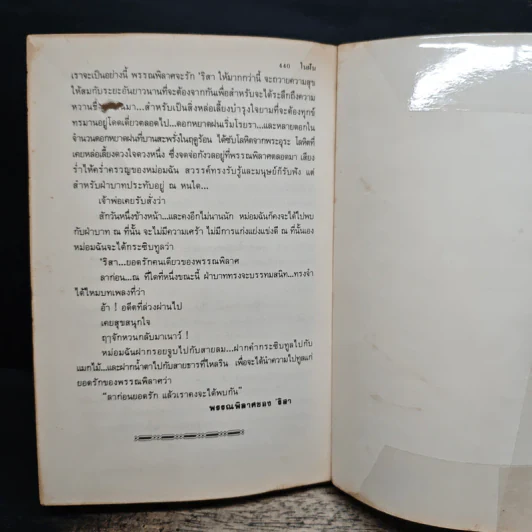 ๔๔๐ ในฝัน
เราจะเป็นอย่างนี้ พรรณพิลาศจะรัก 'ริสา ให้มากกว่านี้ จะถวายความสุข
ให้สมกับระยะอันยาวนานที่จะต้องจากกันเพื่อสำหรับจะได้ระลึกถึงความ
หวานซึ่ง มา...สำหรับเป็นสิ่งหล่อเลี้ยงบำรุงใจยามที่จะต้องทุกข์
ทรมานอยู่โดดเดี่ยวตลอดไป...ดอกหยาดฝนเริ่มโรยรา...และหลายดอกใน
จำนวนดอกหยาดฝนที่บานสะพรั่งในฤดูร้อน ได้ซับโลหิตจากพระอุระ โลหิตที่
เคยหล่อเลี้ยงดวงใจดวงหนึ่ง ซึ่งจงจ่อกังวลอยู่ที่พรรณพิลาศตลอดมา เสียง
ร่ำไห้คร่ำครวญของหม่อมฉัน สวรรค์ทรงรับรู้และมนุษย์ก็รับฟัง แต่
สำหรับฝ่าบาทประทับอยู่ ณ หนใด...
เจ้าพ่อเคยรับสั่งว่า
สักวันหนึ่งข้างหน้า...และคงอีกไม่นานนัก หม่อมฉันก็คงจะได้ไปพบ
กับฝ่าบาท ณ ที่นั้น จะไม่มีความเศร้า ไม่มีการแก่งแย่งแข่งดี ณ ที่นั้นเอง
หม่อมฉันจะได้กระซิบทูลว่า
'ริสา...ยอดรักคนเดียวของพรรณพิลาศ
ลาก่อน...ณ ที่ใดที่หนึ่งขณะนี้ ฝ่าบาททรงจะบรรทมสนิท...ทรงจำ
ได้ไหมบทเพลงที่ว่า
อ้า ! อดีตที่ล่วงผ่านไป
เคยสุขสนุกใจ
ฤๅจักหวนกลับมาเนาว์ !
หม่อมฉันฝากรอยจูบไปกับสายลม...ฝากคำกระซิบทูลไปกับ
แมกไม้...และฝากน้ำตาไปกับสายธารที่ไหลริน เพื่อจะได้นำความไปทูลแก่
ยอดรักของพรรณพิลาศว่า
"ลาก่อนยอดรัก แล้วเราคงจะได้พบกัน"
พรรณพิลาศของ 'ริสา